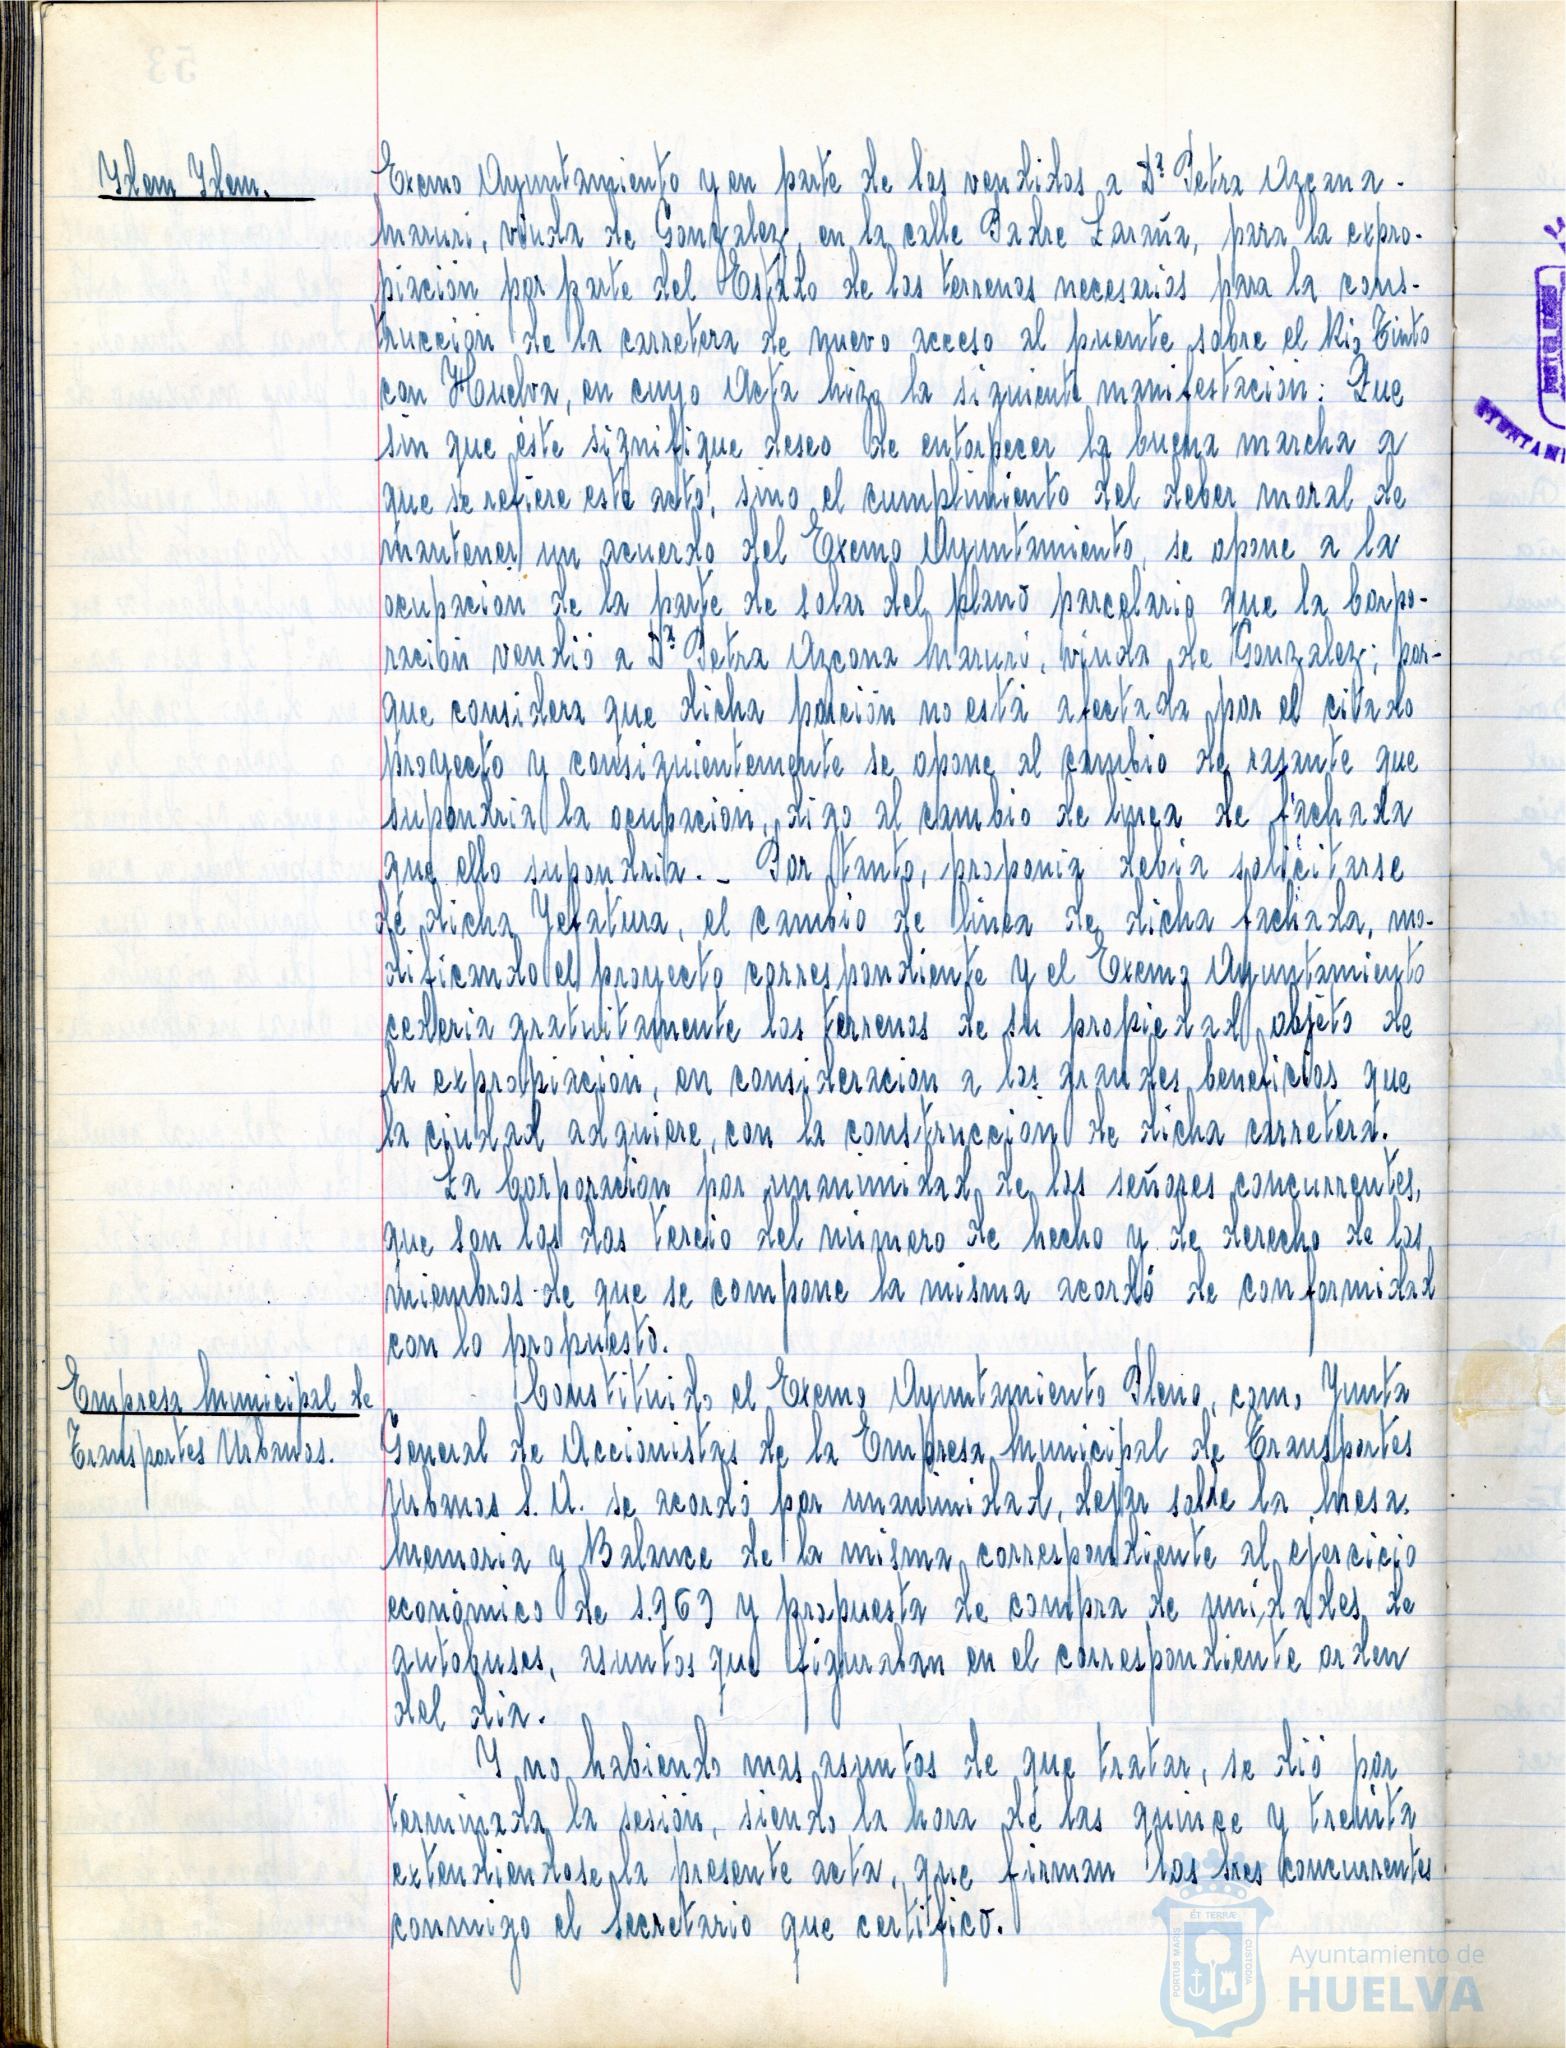 Idem Idem.
Excmo Ayuntamiento y en parte de los vendidos a Dª Petra Azcona
Maruri, viuda de Gonzalez, en la calle Padre Laraña, para la expro-
piacion por parte del Estado de los terrenos necesarios para la cons-
truccion de la carretera de nuevo acceso al puente sobre el Rio Tinto
con Huelva, en cuyo Acta hizo la siguiente manifestacion: Que
sin que éste signifique deseo de entorpecer la buena marcha a
que se refiere este acto, sino el cumplimiento del deber moral de
mantener un acuerdo del Excmo Ayuntamiento, se opone a la
ocupacion de la parte de solar del plano parcelario que la Corpo-
racion vendió a Dª Petra Azcona Maruri, viuda de Gonzalez; por-
que considera que dicha porción no está afectada por el citado
proyecto y consiguientemente se opone al cambio de rasante que
supondria la ocupacion, digo al cambio de linea de fachada
que ello supondria.- Por tanto, proponia debia solicitarse
de dicha Jefatura, el cambio de linea de dicha fachada, mo-
dificando el proyecto correspondiente y el Excmo Ayuntamiento
cederia gratuitamente los terrenos de su propiedad objeto de
la expropiacion, en consideracion a los grandes beneficios que
la ciudad adquiere, con la construccion de dicha carretera.
La Corporacion por unanimidad de los señores concurrentes,
que son los dos tercio del número de hecho y de derecho de los
miembros de que se compone la misma acordó de conformidad
con lo propuesto.
Empresa Municipal de
Transportes Urbanos.
Constituido el Excmo Ayuntamiento Pleno, como Junta
General de Accionistas de la Empresa Municipal de Transportes
Urbanos S.A. se acordó por unanimidad, dejar sobre la Mesa.
Memoria y Balance de la misma correspondiente al ejercicio
económico de 1.969 y propuesta de compra de unidades de
autobuses, asuntos que figuraban en el correspondiente orden
del dia.
Y no habiendo mas asuntos de que tratar, se dió por
terminada la sesión, siendo la hora de las quince y treinta
extendiendose la presente acta, que firman los sres concurrentes
conmigo el Secretario que certifico.
PORTUS MARIS
ET TERRÆ
CUSTODIA
Ayuntamiento de
HUELVA